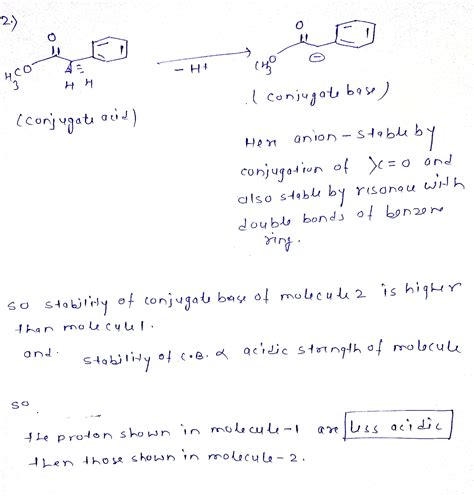 2.)
O
H3CO
H H
(conjugate acid)
- H+
O
CH3O
(conjugate base)
Here anion-stable by
conjugation of >C=O and
also stable by risonace with
double bonds of benzene
ring.
so stability of conjugate base of molecule 2 is higher
than molecule 1.
and. stability of C.B. α acidic strength of molecule
so
the proton shown in molecule-1 are less acidic
then those shown in molecule-2.